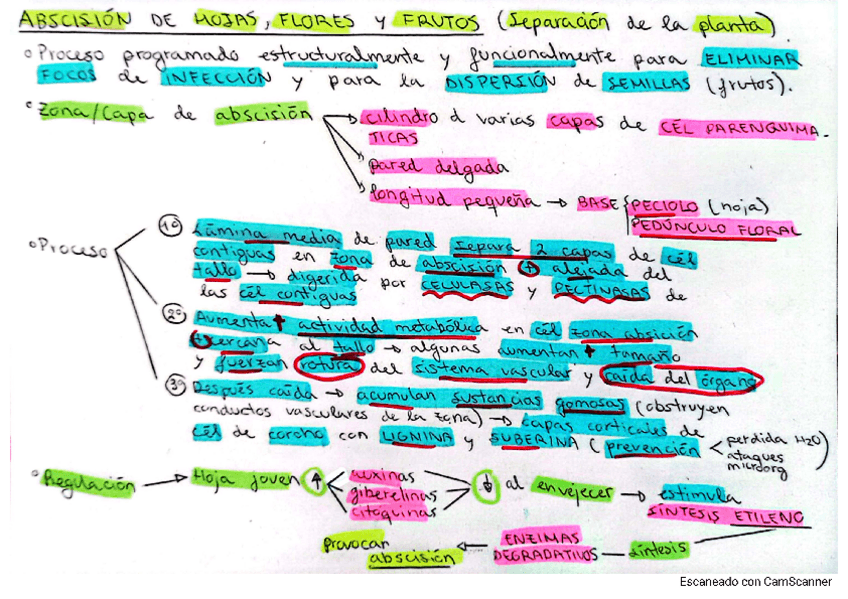 ABSCISIÓN DE HOJAS, FLORES y FRUTOS (Separación de la planta).
Proceso programado estructuralmente y funcionalmente para ELIMINAR
FOCOS de INFECCIÓN y para la DISPERSIÓN de SEMILLAS (frutos).
Zona/Capa de abscisión → cilindro d varias capas de CÉL PARENQUIMA-
TICAS
pared delgada
longitud pequeña → BASE { PECIOLO (hoja)
PEDÚNCULO FLORAL
Proceso
1º Lámina media de pared separa 2 capas de cél
contiguas en zona de abscisión ↑ alejada del
tallo → digerida por CELULASAS y PECTINASAS de
las cél contiguas
2º Aumenta ↑ actividad metabólica en cél zona absición
↑ cercana al tallo → algunas aumentan ↑ tamaño
y fuerzan rotura del sistema vascular y caída del órgano
3º Después caída → acumulan sustancias gomosas (obstruyen
conductos vasculares de la zona) → capas corticales de
cél de corcho con LIGNINA y SUBERINA (prevención < perdida H2O
ataques
microorg)
Regulación → Hoja joven ↑ auxinas
giberelinas
citoquinas
↓ al envejecer → estimula
SÍNTESIS ETILENO
síntesis
ENZIMAS
DEGRADATIVOS
provocar
abscisión
Escaneado con CamScanner